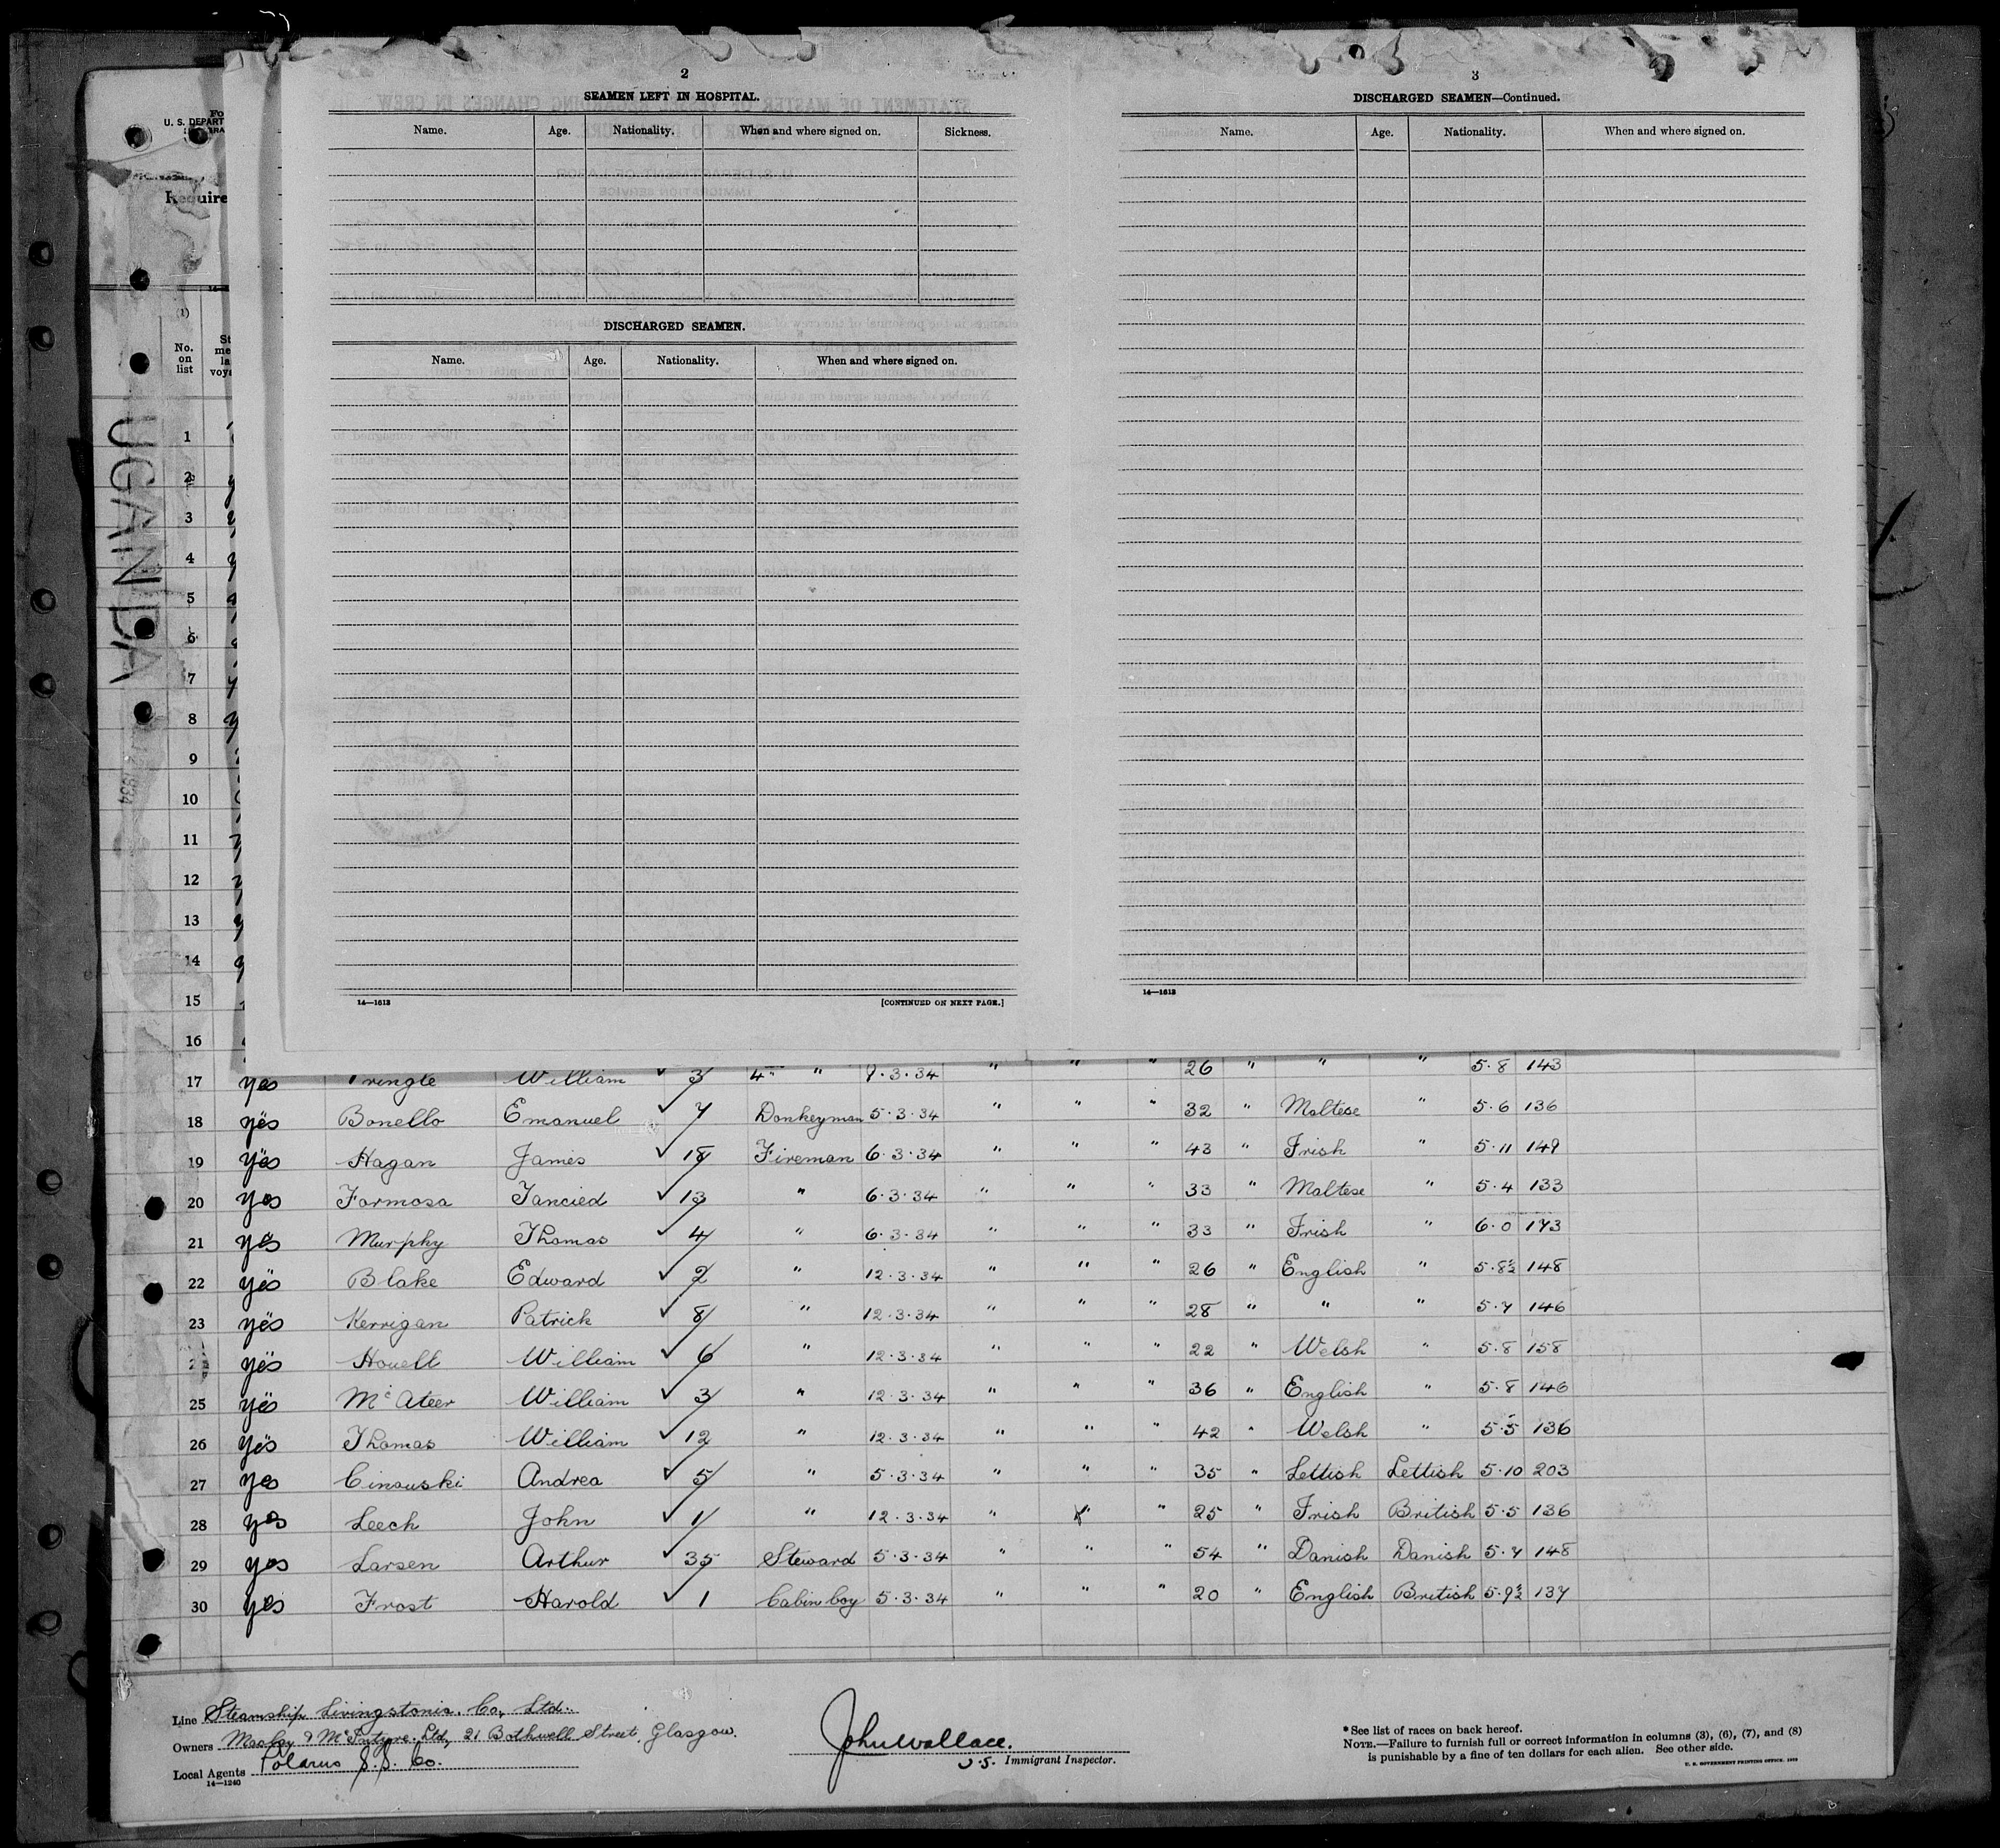 2
SEAMEN LEFT IN HOSPITAL.
Name. Age. Nationality. When and where signed on. Sickness.
DISCHARGED SEAMEN.
Name. Age. Nationality. When and where signed on.
14—1613 [CONTINUED ON NEXT PAGE.]
3
DISCHARGED SEAMEN—Continued.
Name. Age. Nationality. When and where signed on.
14—1613
Fo
U. S. DEPART
Require
(1)
No. on list
UGANDA
1934
1
2
3
4
5
6
7
8
9
10
11
12
13
14
15
16
17 yes Pringle William ✓ 3 4th " 7.3.34 " " " 26 " " " 5.8 143
18 yes Bonello Emanuel ✓ 7 Donkeyman 5.3.34 " " " 32 " Maltese " 5.6 136
19 yes Hagan James ✓ 18 Fireman 6.3.34 " " " 43 " Irish " 5.11 149
20 yes Formosa Tancied ✓ 13 " 6.3.34 " " " 33 " Maltese " 5.4 133
21 yes Murphy Thomas ✓ 4 " 6.3.34 " " " 33 " Irish " 6.0 173
22 yes Blake Edward ✓ 2 " 12.3.34 " " " 26 " English " 5.8½ 148
23 yes Kerrigan Patrick ✓ 8 " 12.3.34 " " " 28 " " " 5.7 146
2 yes Howell William ✓ 6 " 12.3.34 " " " 22 " Welsh " 5.8 158
25 yes McAteer William ✓ 3 " 12.3.34 " " " 36 " English " 5.8 146
26 yes Thomas William ✓ 12 " 12.3.34 " " " 42 " Welsh " 5.5 136
27 yes Cinouski Andrea ✓ 5 " 5.3.34 " " " 35 " Lettish Lettish 5.10 203
28 yes Leech John ✓ 1 " 12.3.34 " " " 25 " Irish British 5.5 136
29 yes Larsen Arthur ✓ 35 Steward 5.3.34 " " " 54 " Danish Danish 5.7 148
30 yes Frost Harold ✓ 1 Cabin boy 5.3.34 " " " 20 " English British 5.9½ 137
Line Steamship Livingstonia. Co, Ltd.
Owners Maclay & McIntyre. Ltd, 21 Bothwell Street, Glasgow.
Local Agents Polarus S.S. Co.
14—1240
John Wallace.
U.S. Immigrant Inspector.
*See list of races on back hereof.
NOTE.—Failure to furnish full or correct information in columns (3), (6), (7), and (8)
is punishable by a fine of ten dollars for each alien. See other side.
U. S. GOVERNMENT PRINTING OFFICE